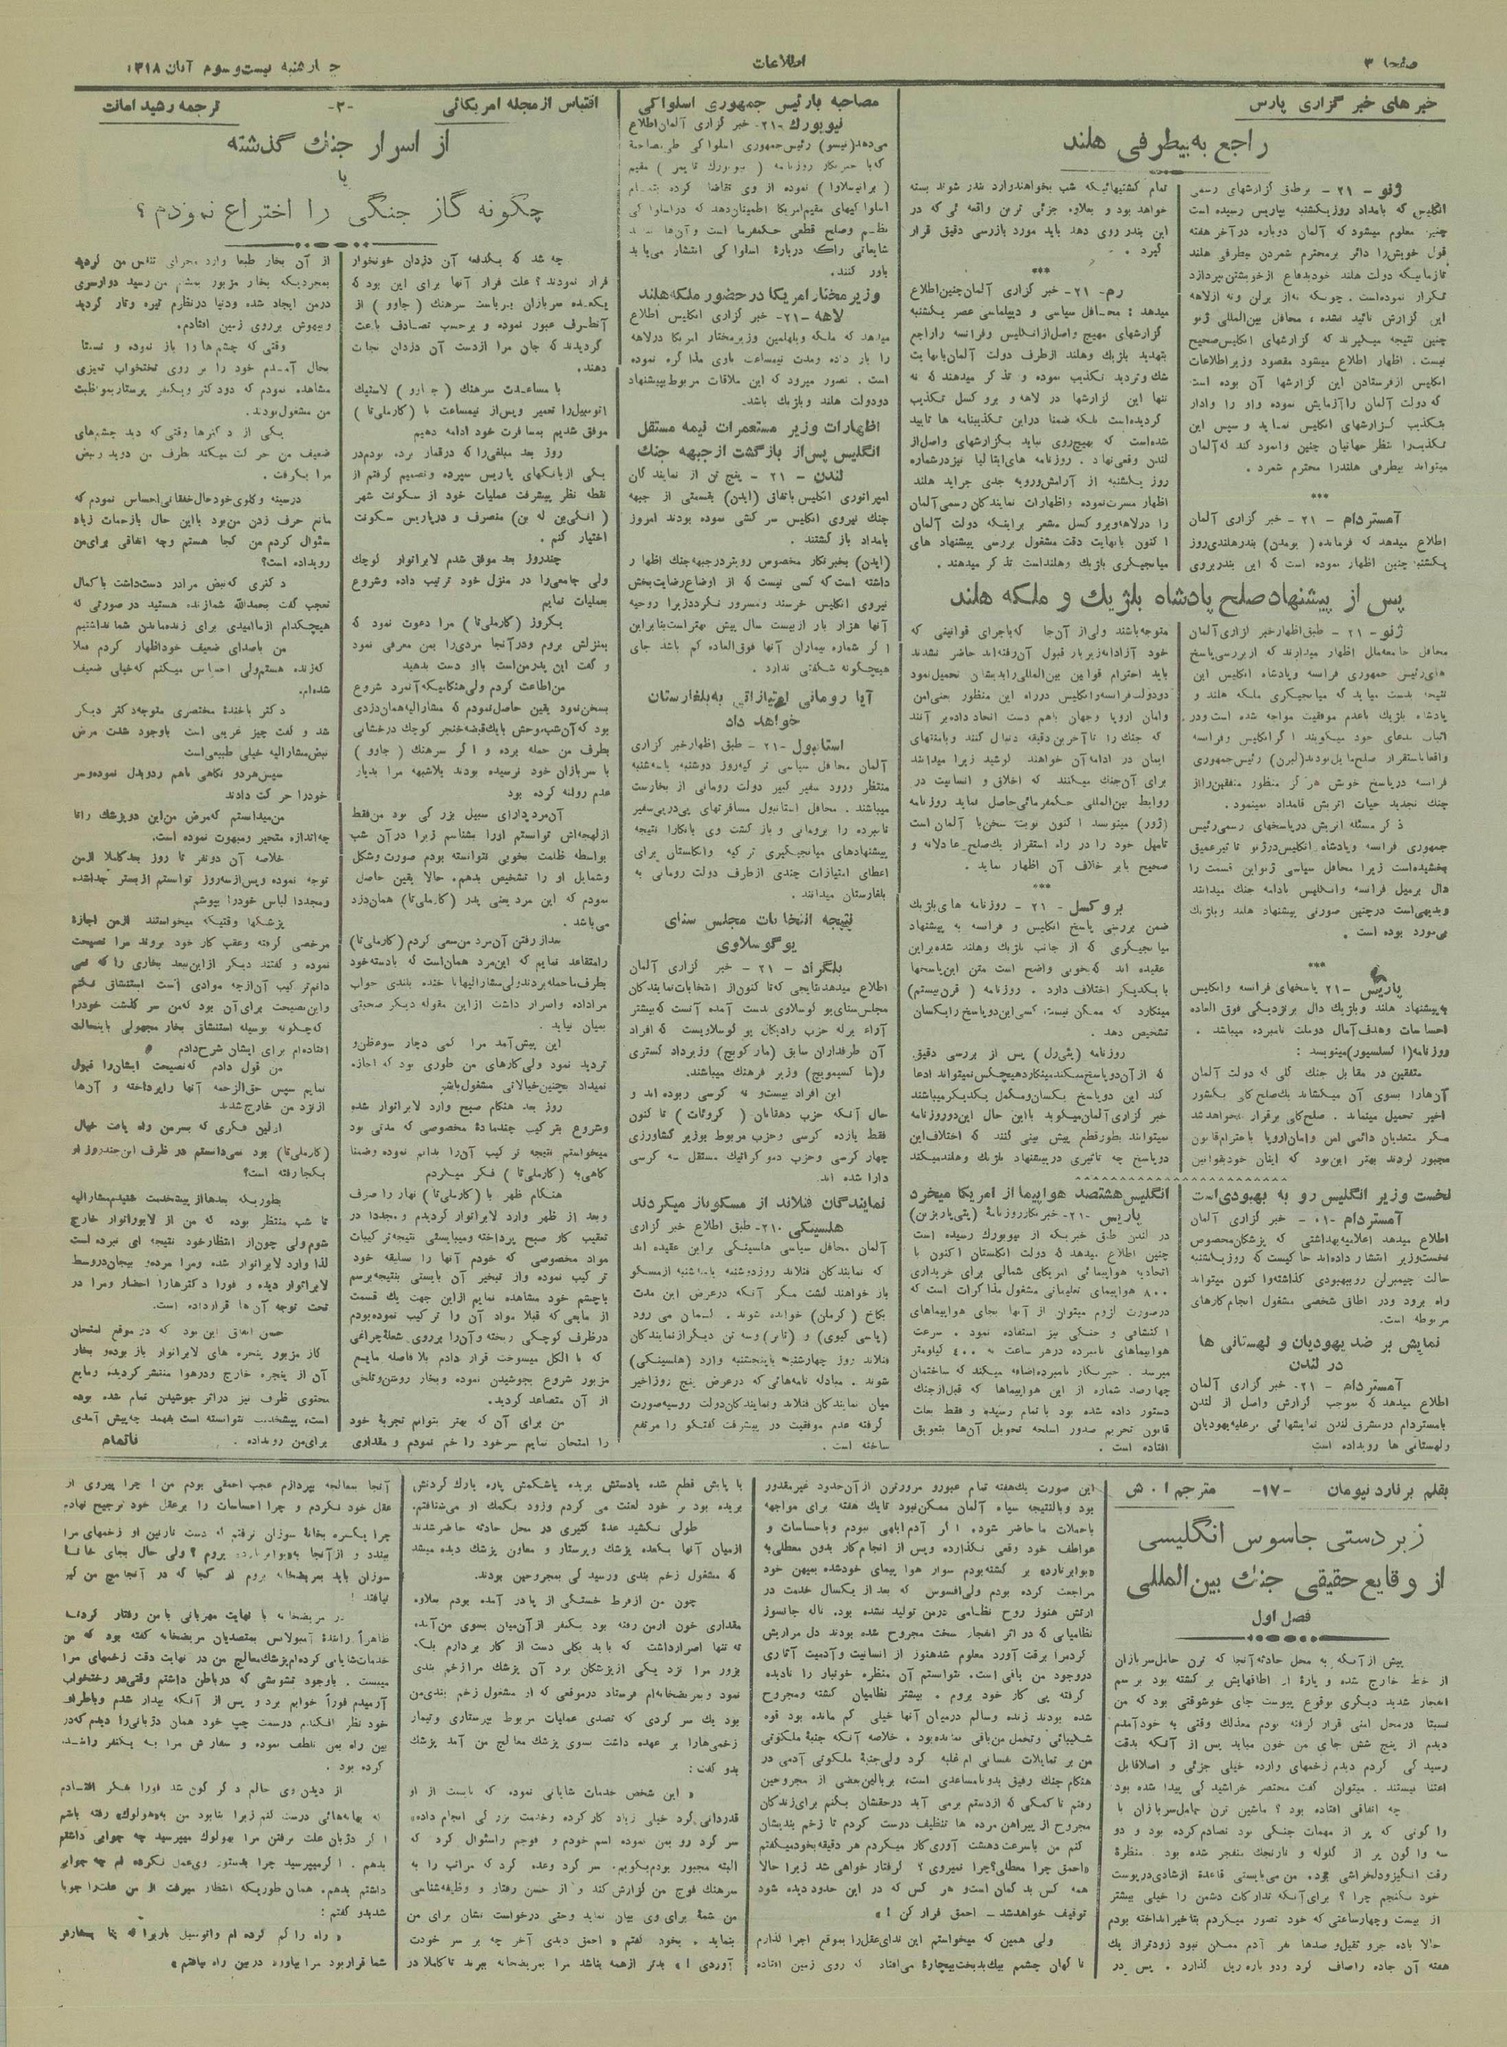 صفحه ۳
اطلاعات
چهارشنبه بیست و سوم آبان ۱۳۱۸
خبرهای خبرگزاری پارس
راجع به بیطرفی هلند
ژنو - ۲۱ - برطبق گزارشهای رسمی
انگلیس که بامداد روز یکشنبه بپاریس رسیده است
چنین معلوم میشود که آلمان دوباره در آخر هفته
قول خویش را دائر بر محترم شمردن بیطرفی هلند
تا زمانیکه دولت هلند خود بدفاع از خویشتن بپردازد
تکرار نموده است. چونکه نه از برلن و نه از لاهه
این گزارش تائید نشده، محافل بین‌المللی ژنو
چنین نتیجه میگیرند که گزارشهای انگلیس صحیح
نیست. اظهار اطلاع میشود مقصود وزیر اطلاعات
انگلیس از فرستادن این گزارشها آن بوده است
که دولت آلمان را آزمایش نموده و او را وادار
بتکذیب گزارشهای انگلیس نماید و سپس این
تکذیب را بنظر جهانیان چنین وانمود کند که آلمان
میتواند بیطرفی هلند را محترم شمرد.
***
آمستردام - ۲۱ - خبر گزاری آلمان
اطلاع میدهد که فرمانده بندر هلندی روز
یکشنبه چنین اظهار نموده است که این بندر بروی
تمام کشتیهائیکه شب بخواهند وارد بندر شوند بسته
خواهد بود و بعلاوه جزئی ترین واقعه ئی که در
این بندر روی دهد باید مورد بازرسی دقیق قرار
گیرد.
***
رم - ۲۱ - خبر گزاری آلمان چنین اطلاع
میدهد: محافل سیاسی و دیپلماسی عصر یکشنبه
گزارشهای مهیج واصل از انگلیس و فرانسه را راجع
بتهدید بلژیک و هلند از طرف دولت آلمان با نهایت
شک و تردید تکذیب نموده و تذکر میدهند که نه
تنها این گزارشها در لاهه و بروکسل تکذیب
گردیده است بلکه ضمنا در این تکذیبنامه ها تایید
شده است که بهیچ روی نباید بگزارشهای واصل از
لندن وقعی نهاد. روزنامه های ایتالیا نیز در شماره
روز یکشنبه از آرامش و رویه جدی جراید هلند
اظهار مسرت نموده و اظهارات نمایندگان رسمی آلمان
را در لاهه و بروکسل مشعر براینکه دولت آلمان
اکنون با نهایت دقت مشغول بررسی پیشنهاد های
میانجیگری بلژیک و هلند است تذکر میدهند.
پس از پیشنهاد صلح پادشاه بلژیك و ملکه هلند
ژنو - ۲۱ - طبق اظهار خبر گزاری آلمان
محافل جامعه ملل اظهار میدارند که از بررسی پاسخ
های رئیس جمهوری فرانسه و پادشاه انگلیس این
نتیجه بدست میاید که میانجیگری ملکه هلند و
پادشاه بلژیك با عدم موفقیت مواجه شده است و در
اثبات مدعای خود میگویند اگر انگلیس و فرانسه
واقعا باستقرار صلح مایل بودند (لبرن) رئیس جمهوری
فرانسه در پاسخ خویش هرگز منظور متفقین را از
جنك تجدید حیات اتریش قلمداد نمینمود.
ذکر مسئله اتریش در پاسخهای رسمی رئیس
جمهوری فرانسه و پادشاه انگلیس در ژنو تاثیر عمیق
بخشیده است زیرا محافل سیاسی ژنو این قسمت را
دال بر میل فرانسه و انگلیس بادامه جنك میدانند
و بدیهی است در چنین صورتی پیشنهاد هلند و بلژیك
بی‌مورد بوده است.
***
پاریس - ۲۱ پاسخهای فرانسه و انگلیس
به پیشنهاد هلند و بلژیك دال بر نزدیکی فوق العاده
احساسات و هدف آمال دو ملت نامبرده میباشد.
روزنامه (اکسلسیور) مینویسد:
متفقین در مقابل جنك کلی که دولت آلمان
آن‌ها را بسوی آن میکشاند یك صلح کلی بکشور
اخیر تحمیل مینماید. صلح کلی برقرار نخواهد شد
مگر متعدیان دائمی امن و امان اروپا باحترام قانون
مجبور گردند بهتر این بود که اینان خود بقوانین
متوجه باشند ولی از آن جا که باجرای قوانینی که
خود آزادانه زیر بار قبول آن رفته‌اند حاضر نشدند
باید احترام قوانین بین‌المللی را بایشان تحمیل نمود
دو دولت فرانسه و انگلیس در راه این منظور حتی امن
و امان اروپا و جهان باهم دست اتحاد داده بر آنند
که جنك را تا آخرین دقیقه دنبال کنند و با منتهای
ایمان در ادامه آن خواهند کوشید زیرا میدانند
برای آن جنك میکنند که اخلاق و انسانیت در
روابط بین‌المللی حکمفرمائی حاصل نماید روزنامه
(ژور) مینویسد اکنون نوبت سخن با آلمان است
تا میل خود را در راه استقرار یك صلح عادلانه و
صحیح یا بر خلاف آن اظهار نماید.
***
بروکسل - ۲۱ - روزنامه های بلژیك
ضمن بررسی پاسخ انگلیس و فرانسه به پیشنهاد
میانجیگری که از جانب بلژیك و هلند شده بر این
عقیده اند که بخوبی واضح است متن این پاسخها
با یکدیگر اختلاف دارد. روزنامه (قرن بیستم)
مینگارد که ممکن نیست کسی این دو پاسخ را یکسان
تشخیص دهد.
که از آن دو پاسخ میکند مینگارد هیچکس نمیتواند ادعا
کند این دو پاسخ یکسان و مکمل یکدیگر میباشند
خبر گزاری آلمان میگوید با این حال این دو روزنامه
نمیتوانند بطور قطع پیش بینی کنند که اختلاف این
دو پاسخ چه تاثیری در پیشنهاد بلژیك و هلند میکند
نخست وزیر انگلیس رو به بهبودی است
آمستردام - ۲۱ - خبر گزاری آلمان
اطلاع میدهد اعلامیه بهداشتی که پزشکان مخصوص
نخست‌وزیر انتشار داده‌اند حاکیست که روز یکشنبه
حالت چمبرلن رو ببهبودی گذاشته و اکنون میتواند
راه برود و در اطاق شخصی مشغول انجام کارهای
مربوطه است.
نمایش بر ضد یهودیان و لهستانی ها
در لندن
آمستردام - ۲۱ - خبر گزاری آلمان
اطلاع میدهد که بموجب گزارش واصل از لندن
بامستردام در مشرق لندن نمایشهائی بر علیه یهودیان
و لهستانی ها رویداده است
انگلیس هشتصد هواپیما از امریکا میخرد
پاریس - ۲۱ - خبرنگار روزنامه (پتی پاریزین)
در لندن طبق خبریکه از نیویورك رسیده است
چنین اطلاع میدهد که دولت انگلستان اکنون با
اتحادیه هواپیمائی امریکای شمالی برای خریداری
۸۰۰ هواپیمای تعلیماتی مشغول مذاکرات است که
در صورت لزوم میتوان از آنها بجای هواپیماهای
اکتشافی و جنگی نیز استفاده نمود. سرعت
هواپیماهای نامبرده در هر ساعت به ۴۰۰ کیلومتر
میرسد. خبرنگار نامبرده اضافه میکند که ساختمان
چهارصد شماره از این هواپیماها که قبل از جنك
دستور داده شده بود باتمام رسیده و فقط بعلت
قانون تحریم صدور اسلحه تحویل آن‌ها بتعویق
افتاده است.
مصاحبه با رئیس جمهوری اسلواکی
نیویورك - ۲۱ - خبر گزاری آلمان اطلاع
میدهد (تیسو) رئیس جمهوری اسلواکی طی مصاحبه
که با خبرنگار روزنامه (نیویورك تایمز) مقیم
(براتیسلاوا) نموده از وی تقاضا کرده بتمام
اسلواکیهای مقیم امریکا اطمینان دهد که در اسلواکی
نظم و صلح قطعی حکمفرما است و آن‌ها نباید
شایعاتی را که درباره اسلواکی انتشار می‌یابد
باور کنند.
وزیر مختار امریکا در حضور ملکه هلند
لاهه - ۲۱ - خبر گزاری انگلیس اطلاع
میدهد که ملکه ویلهلمین وزیر مختار امریکا در لاهه
را بار داده و مدت نیمساعت باوی مذاکره نموده
است. تصور میرود که این ملاقات مربوط بپیشنهاد
دو دولت هلند و بلژیك باشد.
اظهارات وزیر مستعمرات نیمه مستقل
انگلیس پس از بازگشت از جبهه جنك
لندن - ۲۱ - پنج تن از نمایندگان
امپراتوری انگلیس باتفاق (ایدن) بقسمتی از جبهه
جنك نیروی انگلیس سرکشی نموده بودند امروز
بامداد بازگشتند.
(ایدن) بخبرنگار مخصوص رویتر در جبهه جنك اظهار
داشته است که کسی نیست که از اوضاع رضایت‌بخش
نیروی انگلیس خرسند و مسرور نگردد زیرا روحیه
آنها هزار بار از بیست سال پیش بهتر است بنا بر این
اگر شماره بیماران آنها فوق‌العاده کم باشد جای
هیچگونه شگفتی ندارد.
آیا رومانی امتیازاتی به بلغارستان
خواهد داد
استانبول - ۲۱ - طبق اظهار خبر گزاری
آلمان محافل سیاسی ترکیه روز دوشنبه یا سه‌شنبه
منتظر ورود سفیر کبیر دولت رومانی از بخارست
میباشند. محافل استانبول مسافرتهای پی‌درپی سفیر
نامبرده را برومانی و بازگشت وی بانکارا نتیجه
پیشنهادهای میانجیگری ترکیه و انگلستان برای
اعطای امتیازات چندی از طرف دولت رومانی به
بلغارستان میدانند.
نتیجه انتخابات مجلس سنای
یوگوسلاوی
بلگراد - ۲۱ - خبر گزاری آلمان
اطلاع میدهد نتایجی که تا کنون از انتخابات نمایندگان
مجلس سنای یوگوسلاوی بدست آمده آنست که بیشتر
آن طرفداران سابق (مارکویچ) وزیر دادگستری
و (ماکسیموویچ) وزیر فرهنگ میباشند.
این افراد بیست و نه کرسی ربوده اند و
حال آنکه حزب دهقانان (کروات) تا کنون
فقط یازده کرسی و حزب مربوط بوزیر کشاورزی
چهار کرسی و حزب دموکراتیك مستقل سه کرسی
دارا شده اند.
نمایندگان فنلاند از مسکو باز میگردند
هلسینکی - ۲۱ - طبق اطلاع خبر گزاری
آلمان محافل سیاسی هلسینکی بر این عقیده اند
که نمایندگان فنلاند روز دوشنبه یا سه‌شنبه از مسکو
باز خواهند گشت مگر آنکه در عرض این مدت
بکاخ (کرملن) خوانده شوند. گمان می رود
(پاسی کیوی) و (تانر) و سه تن دیگر از نمایندگان
فنلاند روز چهارشنبه یا پنجشنبه وارد (هلسینکی)
شوند. مبادله نامه‌هائی که در عرض پنج روز اخیر
میان نمایندگان فنلاند و نمایندگان دولت روسیه صورت
گرفته عدم موفقیت در پیشرفت گفتگو را مرتفع
ساخته است.
اقتباس از مجله امریکائی
-۲-
ترجمه رشید امانت
از اسرار جنك گذشته
یا
چگونه گاز جنگی را اختراع نمودم؟
چه شد که یکدفعه آن دزدان خونخوار
فرار نمودند؟ علت فرار آنها برای این بود که
یکعده سربازان بریاست سرهنك (جاوو) از
آنطرف عبور نموده و برحسب تصادف باعث
گردیدند که جان مرا از دست آن دزدان نجات
دهند.
با مساعدت سرهنك (جاوو) لاستیك
اتومبیل را تعمیر و پس از نیمساعت با (کارملی‌تا)
موفق شدیم بمسافرت خود ادامه دهیم
روز بعد مبلغی را که در قمار برده بودم در
یکی از بانکهای پاریس سپرده و تصمیم گرفتم از
نقطه نظر پیشرفت عملیات خود از سکونت شهر
منصرف و در پاریس سکونت
اختیار کنم.
چند روز بعد موفق شدم لابراتوار کوچك
ولی جامعی را در منزل خود ترتیب داده و شروع
بعملیات نمایم
یکروز (کارملی‌تا) مرا دعوت نمود که
بمنزلش بروم و در آنجا مردی را بمن معرفی نمود
و گفت این پدر من است با او دست بدهید
من اطاعت کردم ولی هنگامیکه آنمرد شروع
بسخن نمود یقین حاصل نمودم که مشارالیه همان دزدی
بود که آن‌شب وحش با یك قبضه خنجر کوچك درخشانی
بطرف من حمله برده و اگر سرهنك (جاوو)
با سربازان خود نرسیده بودند بلاشبهه مرا بدیار
عدم روانه کرده بود
آن مرد دارای سبیل بزرگی بود من فقط
از لهجه‌اش توانستم اورا بشناسم زیرا در آن شب
بواسطه ظلمت بخوبی نتوانسته بودم صورت و شکل
و شمایل او را تشخیص بدهم. حالا یقین حاصل
نمودم که این مرد یعنی پدر (کارملی‌تا) همان دزد
می‌باشد.
بعد از رفتن آن مرد من سعی کردم (کارملی‌تا)
را متقاعد نمایم که این مرد همان است که با دسته خود
بطرف ما حمله بردند ولی مشارالیها با خنده بلندی جواب
مرا داده و اصرار داشت از این مقوله دیگر صحبتی
بمیان نیاید.
این پیش‌آمد مرا کمی دچار سوءظن و
تردید نمود ولی کارهای من طوری بود که اجازه
نمیداد بچنین خیالاتی مشغول باشم
روز بعد هنگام صبح وارد لابراتوار شده
و شروع بترکیب چند ماده مخصوصی که مدتی بود
میخواستم نتیجه ترکیب آن را بدانم نموده و ضمنا
گاهی به (کارملی‌تا) فکر میکردم
هنگام ظهر با (کارملی‌تا) نهار را صرف
و بعد از ظهر وارد لابراتوار گردیدم و مجددا در
تعقیب کار صبح پرداخته و میبایستی نتیجه ترکیبات
مواد مخصوصی که خودم آنها را سابقه خود
ترکیب نموده و از تبخیر آن بایستی بنتیجه برسم
با چشم خود مشاهده نمایم از این جهت یك قسمت
از مایعی که قبلا مواد آن را ترکیب نموده بودم
در ظرف کوچکی ریخته و آن را بر روی شعله چراغی
که با الکل میسوخت قرار دادم بلافاصله مایع
مزبور شروع بجوشیدن نموده و بخار روشن و تلخی
از آن متصاعد گردید.
من برای آن که بهتر بتوانم تجربه خود
را امتحان نمایم سر خود را خم نمودم و مقداری
از آن بخار طبعا وارد مجرای تنفس من گردید
بمجردیکه بخار مزبور بمشام من رسید دوار سری
در من ایجاد شده و دنیا در نظرم تیره و تار گردید
و بیهوش بر روی زمین افتادم.
وقتی که چشم ها را باز نموده و نسبتا
بحال آمدم خود را بر روی تختخواب تمیزی
مشاهده نمودم که دو دکتر و یکنفر پرستار بمواظبت
من مشغول بودند.
یکی از دکترها وقتی که دید چشمهای
ضعیف من حرکت میکند بطرف من دوید و نبض
مرا بگرفت.
در سینه و گلوی خود حال خفقانی احساس نمودم که
مانع حرف زدن من بود با این حال با زحمات زیاد
سئوال کردم من کجا هستم و چه اتفاقی برای من
رویداده است؟
دکتری که نبض مرا در دست داشت با کمال
تعجب گفت بحمدالله شما زنده هستید در صورتی که
هیچکدام از ما امیدی برای زنده ماندن شما نداشتیم
من با صدای ضعیف خود اظهار کردم فعلا
که زنده هستم ولی احساس میکنم که خیلی ضعیف
شده‌ام.
دکتر با خنده مختصری متوجه دکتر دیگر
شد و گفت چیز غریبی است با وجود شدت مرض
نبض مشارالیه خیلی طبیعی است
سپس هر دو نگاهی باهم رد و بدل نموده و سر
خود را حرکت دادند
من میدانستم که مرض من این دو پزشك را تا
چه‌اندازه متحیر و مبهوت نموده است.
خلاصه آن دو نفر تا روز بعد کاملا از من
توجه نموده و پس از سه روز توانستم از بستر جدا شده
و مجددا لباس خود را بپوشم
پزشکها وقتیکه میخواستند از من اجازه
مرخصی گرفته و عقب کار خود بروند مرا نصیحت
نموده و گفتند دیگر از این ببعد بخاری را که نمی
دانم ترکیب آن از چه موادی است استنشاق نکنم
و این نصیحت برای آن بود که من سرگذشت خود را
که چگونه بوسیله استنشاق بخار مجهولی باینحالت
افتاده ام برای ایشان شرح دادم
من قول دادم که نصیحت ایشان را قبول
نمایم سپس حق‌الزحمه آنها را پرداخته و آن‌ها
از نزد من خارج شدند
اولین فکری که بسر من راه یافت خیال
(کارملی‌تا) بود نمی‌دانستم در ظرف این چند روز او
بکجا رفته است؟
بطوریکه بعدها از پیشخدمت شنیدم مشارالیه
تا شب منتظر بوده که من از لابراتوار خارج
شوم ولی چون از انتظار خود نتیجه ای نبرده است
لذا وارد لابراتوار شده و مرا مرده و بیجان در وسط
لابراتوار دیده و فورا دکترها را احضار و مرا در
تحت توجه آن ها قرار داده است.
حسن اتفاق این بود که در موقع امتحان
گاز مزبور پنجره های لابراتوار باز بوده و بخار
آن از پنجره خارج و در هوا منتشر گردیده و مایع
محتوی ظرف نیز در اثر جوشیدن تمام شده بوده
است، پیشخدمت نتوانسته است بفهمد چه پیش آمدی
برای من رویداده.
ناتمام
بقلم برنارد نیومان
-۱۷-
مترجم ا. ش
زبردستی جاسوس انگلیسی
از وقایع حقیقی جنك بین‌المللی
فصل اول
پیش از آنکه به محل حادثه آنجا که ترن حامل سربازان
از خط خارج شده و پاره از اطاقهایش برگشته بود برسم
انفجار شدید دیگری بوقوع پیوست جای خوشوقتی بود که من
نسبتا در محل امنی قرار گرفته بودم معذلك وقتی به خود آمدم
دیدم از پنج شش جای من خون میاید پس از آنکه بدقت
رسیدگی کردم دیدم زخمهای وارده خیلی جزئی و اصلا قابل
اعتنا نیستند. میتوان گفت مختصر خراشیدگی پیدا شده بود
چه اتفاقی افتاده بود؟ ماشین ترن حامل سربازان با
واگونی که پر از مهمات جنگی بود تصادم کرده بود و دو
سه واگون پر از گلوله و نارنجك منفجر شده بود منظره
رقت انگیز و دلخراشی بود. من می‌بایستی قاعدة از شادی در پوست
خود نگنجم چرا؟ برای آنکه تدارکات دشمن را خیلی بیشتر
از بیست و چهار ساعتی که خود تصور میکردم بتاخیر انداخته بودم
حالا باده جرو ثقیل و صدها نفر آدم ممکن نبود زودتر از یك
هفته آن جاده را صاف کرد و دوباره ریل گذارد. پس در
این صورت یك هفته تمام عبور و مرور ترن از آن حدود غیر مقدور
بود و بالنتیجه سپاه آلمان ممکن نبود تا یك هفته برای مواجهه
با حملات ما حاضر شود. اگر آدم ابلهی نبودم و با احساسات و
عواطف خود وقعی نگذارده و پس از انجام کار بدون معطلی به
«بوابرنارد» برگشته بودم سوار هواپیمای خود شده بمیهن خود
مراجعت کرده بودم ولی افسوس که بعد از یکسال خدمت در
ارتش هنوز روح نظامی در من تولید نشده بود. ناله جانسوز
نظامیانی که در اثر انفجار سخت مجروح شده بودند دل مرا ریش
کرد مرا برقت آورد معلوم شد هنوز از انسانیت و آدمیت آثاری
در وجود من باقی است. نتوانستم آن منظره خونبار را نادیده
گرفته پی کار خود بروم. بیشتر نظامیان کشته و مجروح
شده بودند زنده و سالم در میان آنها خیلی کم مانده بود قوه
شکیبائی و تحمل من باقی نمانده بود. خلاصه آنکه جنبه ملکوتی
من بر تمایلات نفسانی ام غلبه کرد ولی جنبه ملکوتی آدمی در
هنگام جنك رفیق بد و نامساعدی است، بر بالین بعضی از مجروحین
رفتم تا کمکی که از دستم برمی آید در حقشان بکنم برای زندگان
مجروح از پیراهن مرده ها تنظیف درست کردم تا زخم بندیشان
کنم من با سرعت دهشت آوری کار میکردم هر دقیقه بخود میگفتم
«احمق چرا معطلی؟ چرا نمیروی؟ گرفتار خواهی شد زیرا حالا
همه کس بدگمان است و هر کس که در این حدود دیده شود
توقیف خواهد شد - احمق فرار کن!»
ولی همین که میخواستم این ندای عقل را بموقع اجرا گذارم
ناگهان چشمم بیك بدبخت بیچاره می‌افتاد که روی زمین افتاده
با پایش قطع شده یا دستش بریده یا شکمش پاره یا رك گردنش
بریده بود بر خود لعنت می کردم و زود بکمك او می‌شتافتم.
طولی نکشید عده کثیری در محل حادثه حاضر شدند
از میان آنها یکعده پزشك و پرستار و معاون پزشك دیده میشد
که مشغول زخم بندی و رسیدگی بمجروحین بودند.
چون من از فرط خستگی از پا در آمده بودم بعلاوه
مقداری خون از من رفته بود یکنفر از آن‌میان بسوی من آمده
نه تنها اصرار داشت که باید بکلی دست از کار بردارم بلکه
بزور مرا نزد یکی از پزشکان برد آن پزشك مرا زخم بندی
نمود و بمریضخانه‌ام فرستاد در موقعی که او مشغول زخم بندی من
بود یك سرگردی که تصدی عملیات مربوط بپرستاری و تیمار
زخمی‌ها را بر عهده داشت بسوی پزشك معالج من آمد پزشك
بدو گفت:
«این شخص خدمات شایانی نموده که بایست از او
قدردانی کرد خیلی زیاد کار کرده و خدمت بزرگی انجام داده»
سرگرد رو بمن نموده اسم خودم و فوجم را سئوال کرد که
البته مجبور بودم بگویم. سرگرد وعده کرد که مراتب را به
سرهنك فوج من گزارش کند و از حسن رفتار و وظیفه‌شناسی
من شمه برای وی بیان نماید و حتی درخواست نشان برای من
بنماید. بخود گفتم «احمق دیدی آخر چه بر سر خودت
آوردی!» بدتر از همه بناشد مرا بمریضخانه ببرند تا کاملا در
آنجا بمعالجه بپردازم عجب احمقی بودم من! چرا پیروی از
عقل خود نکردم و چرا احساسات را بر عقل خود ترجیح نهادم
چرا یکسره بخانه سوزان نرفتم که دست نازنین او زخمهای مرا
ببندد و از آنجا به «بوابرنارد» بروم؟ ولی حال بجای خانه
سوزان باید بمریضخانه بروم
در مریضخانه با نهایت مهربانی بامن رفتار کردند
ظاهرا راننده آمبولانس بمتصدیان مریضخانه گفته بود که من
خدمات شایانی کرده‌ام پزشك معالج من در نهایت دقت زخمهای مرا
میبست. باوجود تشویشی که در باطن داشتم وقتی در رختخواب
آرمیدم فوراً خوابم برد و پس از آنکه بیدار شدم و باطراف
خود نظر افکندم در سمت چپ خود همان دژبانی را دیدم که در
بین راه بمن تلطف نموده و سفارش مرا به یکنفر راننده
کرده بود.
از دیدن وی حالم دگرگون شد فورا بفکر افتادم
که بهانه‌هائی درست کنم زیرا بنابود من به «هولوك» رفته باشم
اگر دژبان علت نرفتن مرا بهولوك میپرسید چه جوابی داشتم
بدهم. اگر میپرسید چرا بدستور وی عمل نکرده ام چه جوابی
داشتم بدهم. همان طوریکه انتظار میرفت از من علت را جویا
شد بدو گفتم:
«راه را گم کرده ام و اتومبیل باربرا که بنا بسفارش
شما قرار بود مرا بیاورد در بین راه نیافتم»